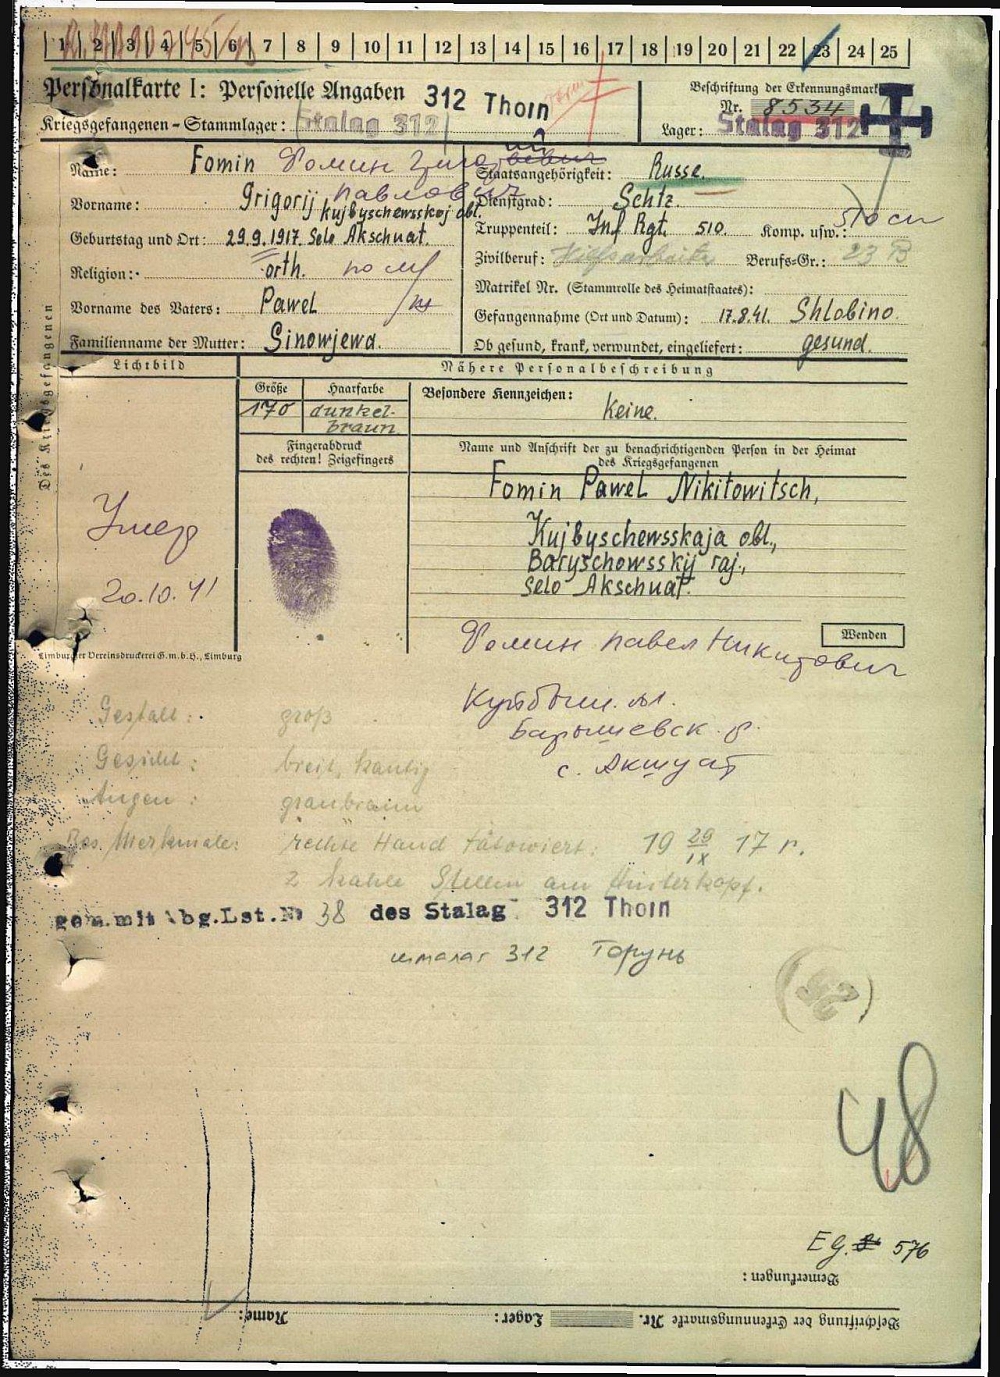 1 2 3 4 5 6 7 8 9 10 11 12 13 14 15 16 17 18 19 20 21 22 23 24 25
Personalkarte I: Personelle Angaben 312 Thorn
Kriegsgefangenen-Stammlager: Stalag 312
Beschriftung der Erkennungsmarke
Nr. 8534
Lager: Stalag 312
Name: Fomin Фомин
Vorname: Grigorij Павлович
Kujbyschewsskoj obl.
Geburtstag und Ort: 29.9.1917. Selo Akschuat.
Religion: orth.
Vorname des Vaters: Pawel
Familienname der Mutter: Sinowjewa.
Staatsangehörigkeit: Russe.
Dienstgrad: Schtz.
Truppenteil: Inf Rgt. 510. Komp. usw.: 510 сп
Zivilberuf: Hilfsarbeiter Berufs-Gr.: 23 B
Matrikel Nr. (Stammrolle des Heimatstaates):
Gefangennahme (Ort und Datum): 17.8.41. Shlobino.
Ob gesund, krank, verwundet, eingeliefert: gesund.
Des Kriegsgefangenen
Lichtbild
Nähere Personalbeschreibung
Größe Haarfarbe
170 dunkel-
braun.
Besondere Kennzeichen:
Keine.
Fingerabdruck
des rechten! Zeigefingers
Name und Anschrift der zu benachrichtigenden Person in der Heimat
des Kriegsgefangenen
Fomin Pawel Nikitowitsch,
Kujbyschewsskaja obl.,
Baryschowsskij raj.,
Selo Akschuat.
Умер
20.10.41
Wenden
Limburger Vereinsdruckerei G.m.b.H., Limburg
Фомин Павел Никитович
Куйбыш. обл.
Барышевск. р.
с. Акшуат
Gestalt: groß
Gesicht: breit, kantig
Augen: graubraun
Bes. Merkmale: rechte Hand tätowiert. 19 29/IX 17 г.
2 kahle Stellen am Hinterkopf.
gem.mit Abg.Lst.Nr 38 des Stalag 312 Thorn
шталаг 312 Торунь
48
Eg. 576
Bemerkungen:
Beschriftung der Erkennungsmarke Nr. Lager: Name: